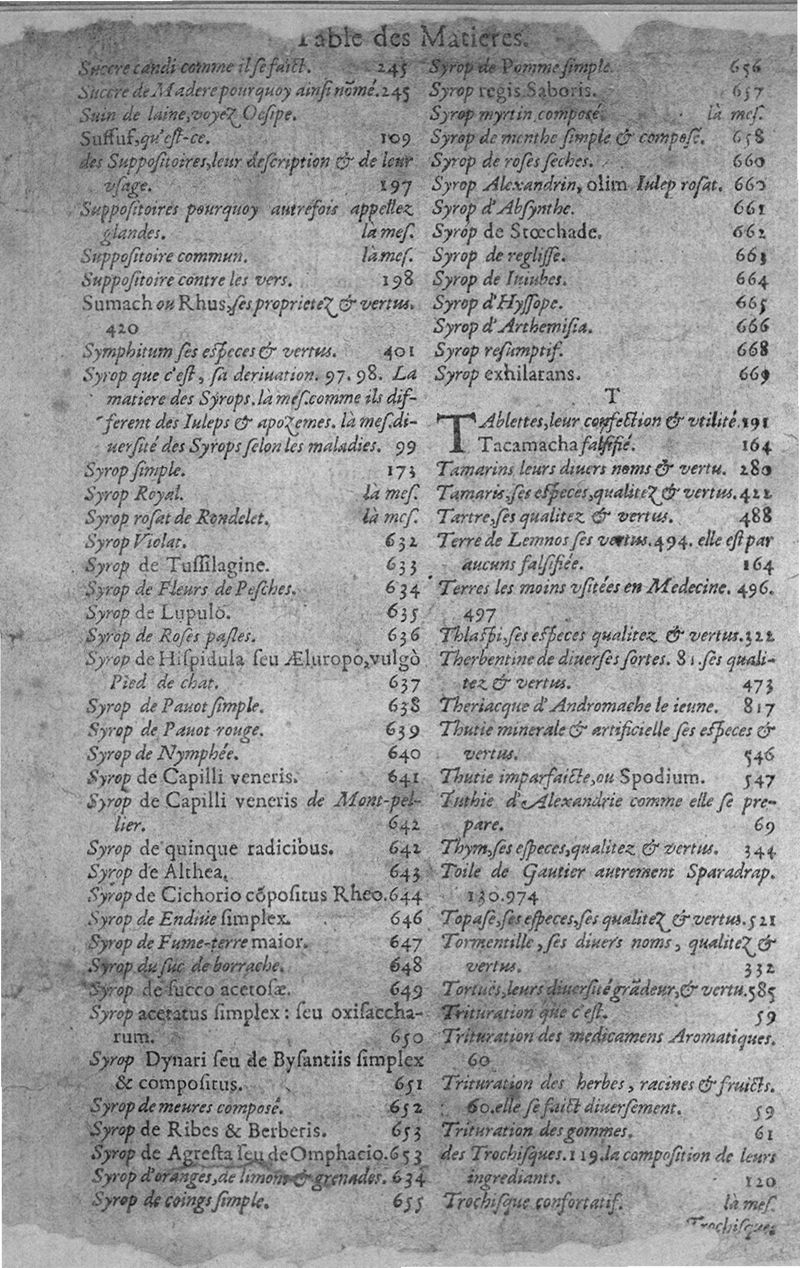 Table des Matieres.
Succre candi comme il se faict. 245
Succre de Madere pourquoy ainsi nõmé. 245
Suin de laine, voyez Oesipe.
Suffuf, qu'est-ce. 109
des Suppositoires, leur description & de leur
vsage. 197
Suppositoires pourquoy autrefois appellez
glandes. là mes.
Suppositoire commun. là mes.
Suppositoire contre les vers. 198
Sumach ou Rhus, ses proprietez & vertus.
420
Symphitum ses especes & vertus. 401
Syrop que c'est, sa deriuation. 97. 98. La
matiere des Syrops. là mes. comme ils dif-
ferent des Iuleps & apozemes. là mes. di-
uersité des Syrops selon les maladies. 99
Syrop simple. 173
Syrop Royal. là mes.
Syrop rosat de Rondelet. là mes.
Syrop Violat. 632
Syrop de Tussilagine. 633
Syrop de Fleurs de Pesches. 634
Syrop de Lupulo. 635
Syrop de Roses pasles. 636
Syrop de Hispidula seu Æluropo, vulgò
Pied de chat. 637
Syrop de Pauot simple. 638
Syrop de Pauot rouge. 639
Syrop de Nymphée. 640
Syrop de Capilli veneris. 641
Syrop de Capilli veneris de Mont-pel-
lier. 642
Syrop de quinque radicibus. 642
Syrop de Althea. 643
Syrop de Cichorio cõpositus Rheo. 644
Syrop de Endiue simplex. 646
Syrop de Fume-terre maior. 647
Syrop du suc de borrache. 648
Syrop de succo acetosæ. 649
Syrop acetatus simplex: seu oxisaccha-
rum. 650
Syrop Dynari seu de Bysantiis simplex
& compositus. 651
Syrop de meures composé. 652
Syrop de Ribes & Berberis. 653
Syrop de Agresta seu de Omphacio. 653
Syrop d'oranges, de limons & grenades. 634
Syrop de coings simple. 655
Syrop de Pomme simple. 656
Syrop regis Saboris. 657
Syrop myrtin composé. là mes.
Syrop de menthe simple & composé. 658
Syrop de roses seches. 660
Syrop Alexandrin, olim Iulep rosat. 660
Syrop d'Absynthe. 661
Syrop de Stœchade. 662
Syrop de reglisse. 663
Syrop de Iuiubes. 664
Syrop d'Hyssope. 665
Syrop d'Arthemisia. 666
Syrop resumptif. 668
Syrop exhilarans. 669
T
TAblettes, leur confection & vtilité. 191
Tacamacha falsifié. 164
Tamarins leurs diuers noms & vertu. 280
Tamaris, ses especes, qualitez & vertus. 422
Tartre, ses qualitez & vertus. 488
Terre de Lemnos ses vertus. 494. elle est par
aucuns falsifiée. 164
Terres les moins vsitées en Medecine. 496.
497
Thlaspi, ses especes qualitez & vertus. 322
Therbentine de diuerses sortes. 81. ses quali-
tez & vertus. 473
Theriacque d'Andromache le ieune. 817
Thutie minerale & artificielle ses especes &
vertus. 546
Thutie imparfaicte, ou Spodium. 547
Tuthie d'Alexandrie comme elle se pre-
pare. 69
Thym, ses especes, qualitez & vertus. 344
Toile de Gautier autrement Sparadrap.
130. 974
Topase, ses especes, ses qualitez & vertus. 521
Tormentille, ses diuers noms, qualitez &
vertus. 332
Tortuës, leurs diuersité grãdeur, & vertu. 585
Trituration que c'est. 59
Trituration des medicamens Aromatiques.
60
Trituration des herbes, racines & fruicts.
60. elle se faict diuersement. 59
Trituration des gommes. 61
des Trochisques. 119. la composition de leurs
ingrediants. 120
Trochisque confortatif. là mes.
Trochisques